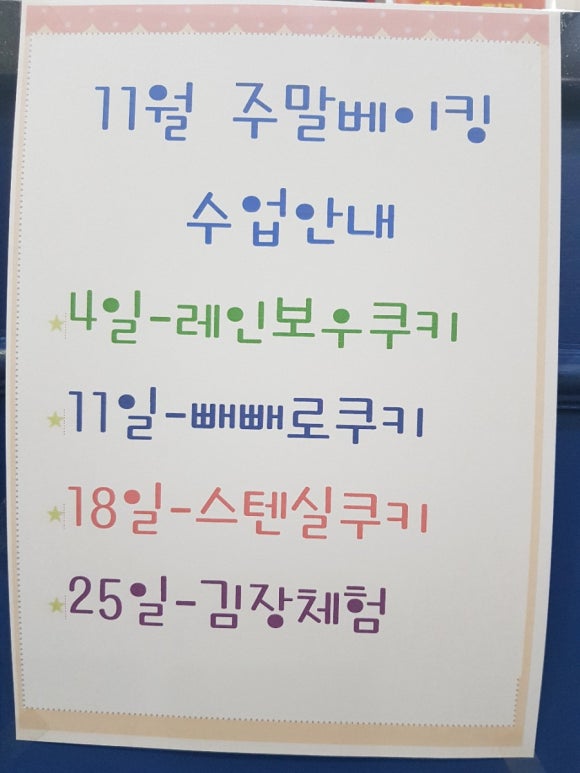 11월 주말베이킹
수업안내
4일-레인보우쿠키
11일-빼빼로쿠키
18일-스텐실쿠키
25일-김장체험